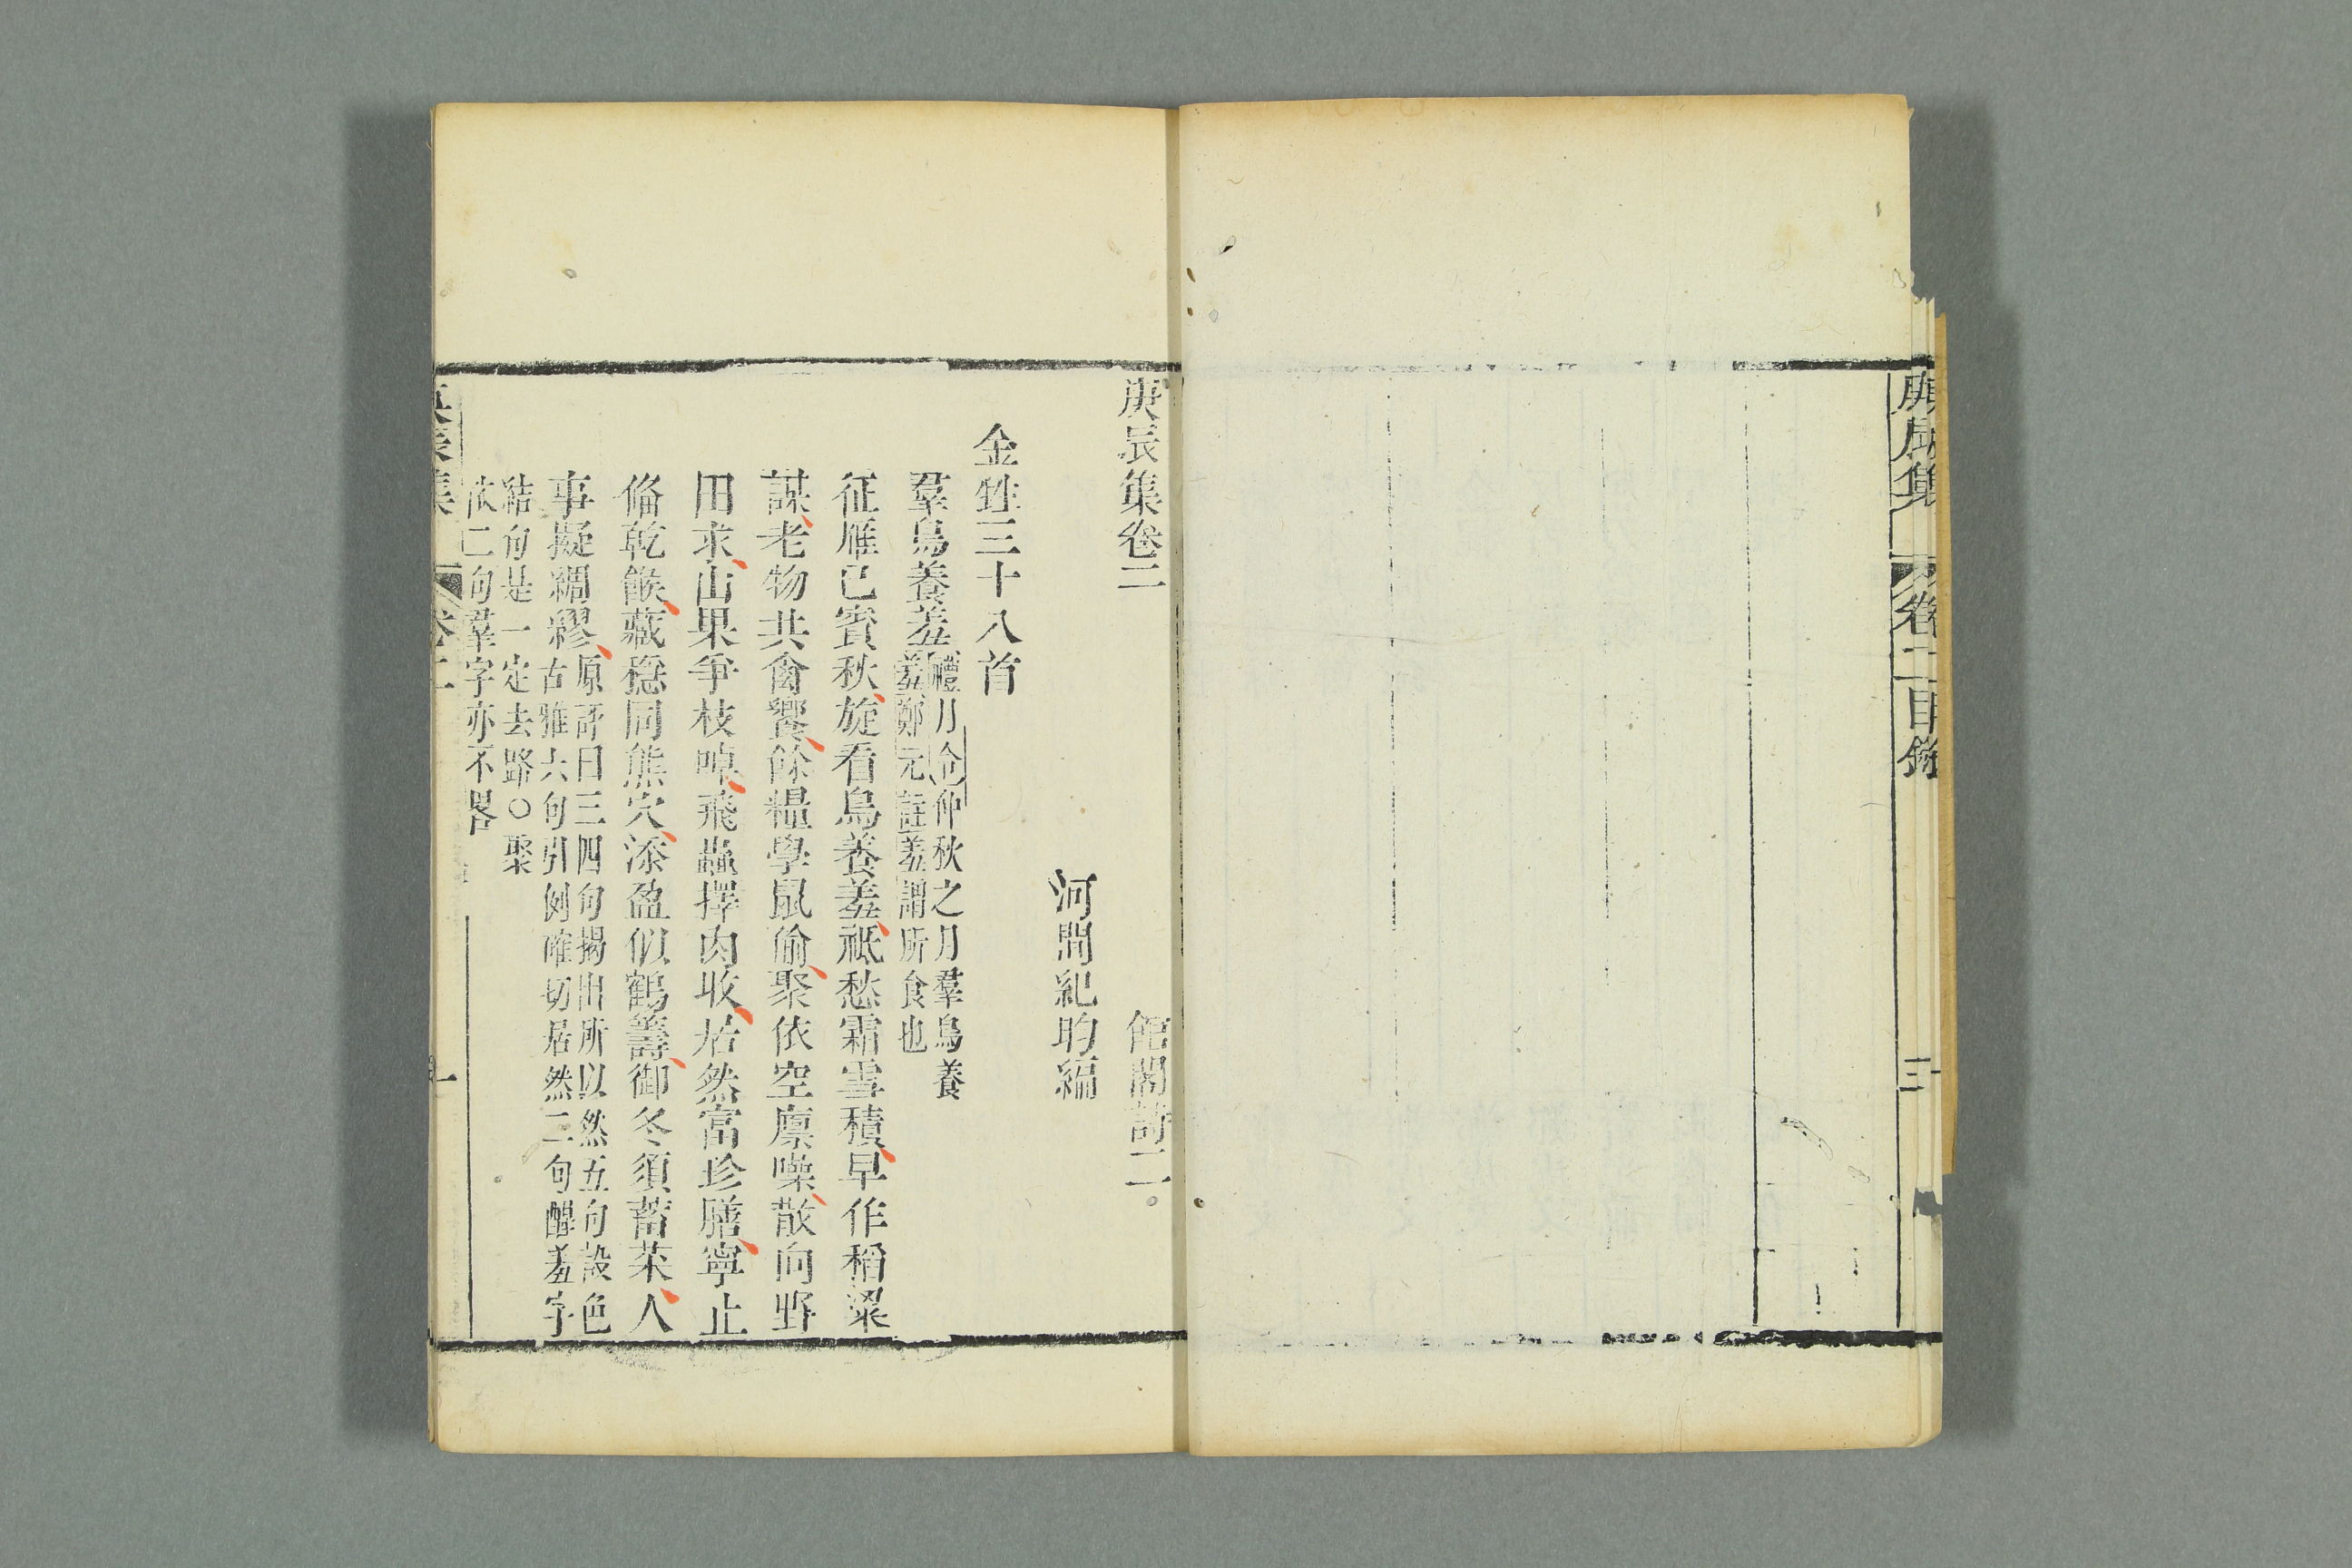 庚辰集
卷二目錄
三
庚辰集卷二
館閣詩二
河間紀昀編
金甡三十八首
羣鳥養羞
禮月令仲秋之月羣鳥養
羞鄭元註羞謂所食也
征雁已賓秋旋看鳥養羞祗愁霜雪積早作稻粱
謀老物共禽饗餘糧學鼠偷聚依空廩噪散向野
田求山果爭枝啅飛蟲擇肉收居然富珍膳寧止
備乾餱藏穩同熊穴添盈似鶴籌御冬須蓄菜人
事擬綢繆
原評曰三四句揭出所以然五句設色
古雅六句引例確切居然二句醒羞字
結句是一定去路○聚
依二句羣字亦不畧
卷二
一